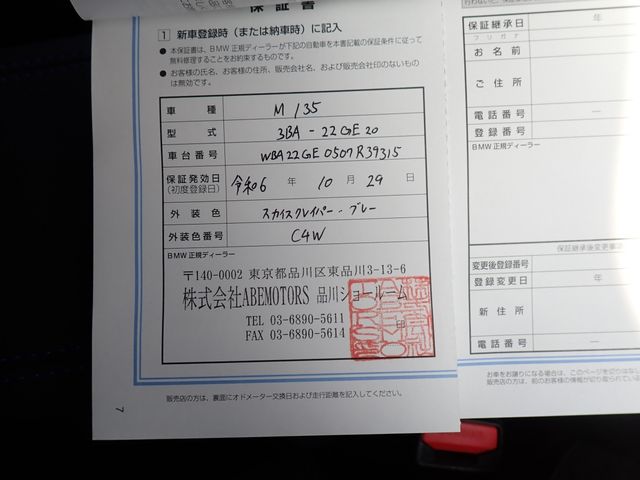 保証書
1 新車登録時（または納車時）に記入
● 本保証書は、BMW正規ディーラーが下記の自動車を本書記載の保証条件に従って
無料修理することをお約束するものです。
● お客様の氏名、お客様の住所、販売会社名、および販売会社印のないもの
は無効です。
車種 M135
型式 3BA-22GE20
車台番号 WBA22GE0507R39315
保証発効日
(初度登録日) 令和6年10月29日
外装色 スカイスクレイパー・グレー
外装色番号 C4W
BMW正規ディーラー
〒140-0002 東京都品川区東品川3-13-6
株式会社ABEMOTORS 品川ショールーム
TEL 03-6890-5611
FAX 03-6890-5614 印
販売店の方は、裏面にオドメーター交換日および走行距離を記入してください。
7
保証継承日 年
フリガナ
お名前
ご住所
電話番号 ―
登録番号
BMW正規ディーラー
保証継承後変更事
変更後登録番号
登録変更日 年
新住所
電話番号 ―
お車をお譲りになる場合は、このページを切りはなし
販売店の方は、前のお客様の情報が切り取られてい